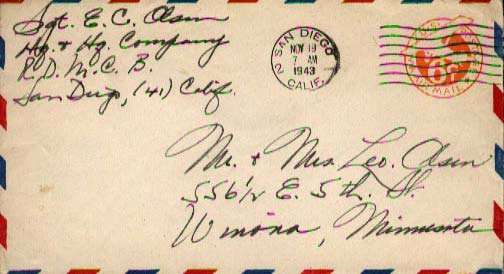 Sgt. E. C. Olsen
Hq. + Hq. Company
R.D. M.C.B.
San Diego, (41) Calif.
SAN DIEGO
2
CALIF.
NOV 19
7 AM
1943
U.S.
6¢
AIR MAIL
Mr. + Mrs. Leo. Olsen
556 1/2 E. 5th. St.
Winona, Minnesota